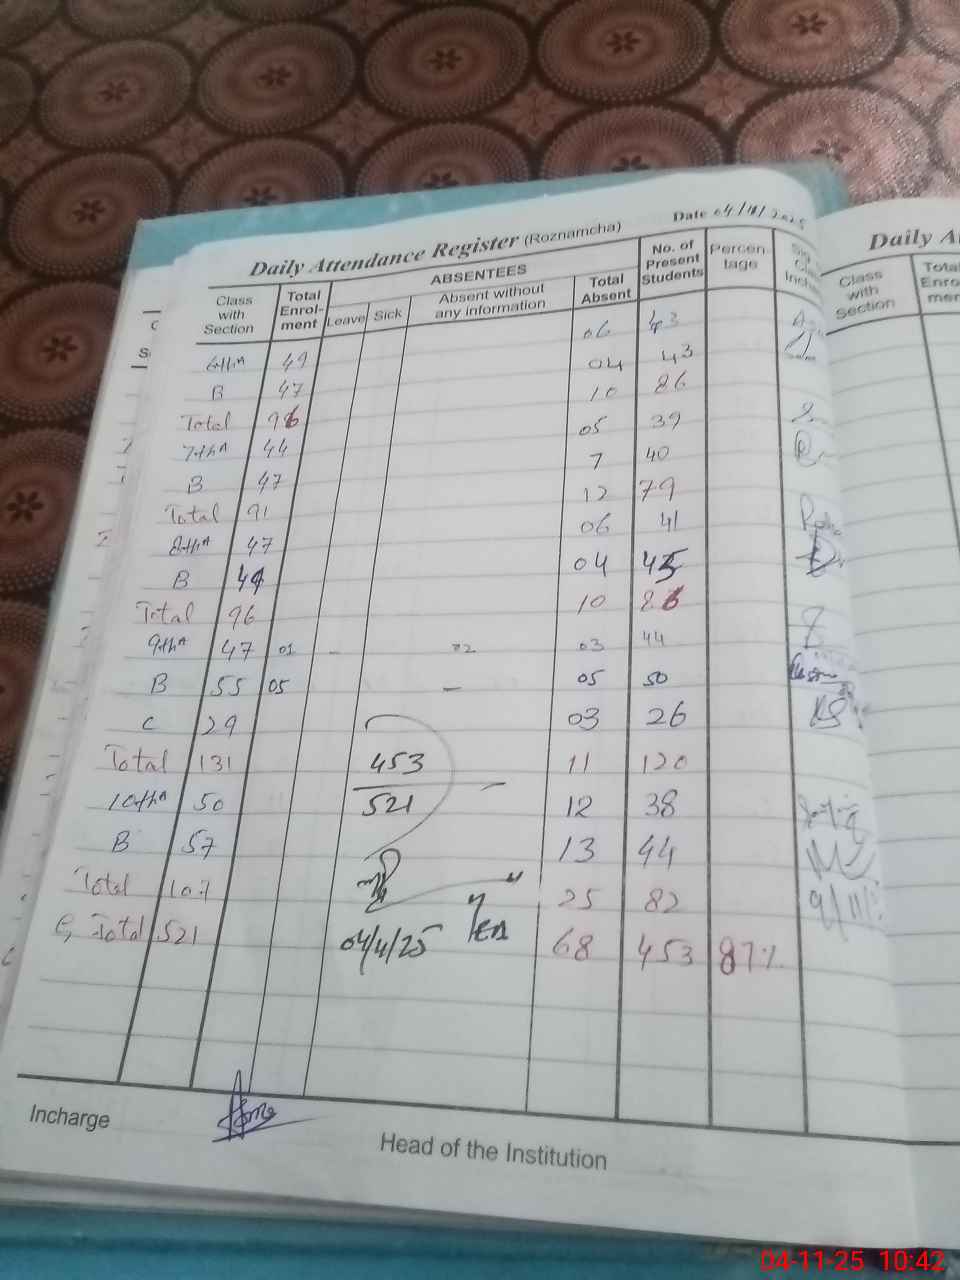 Daily Attendance Register (Roznamcha) Date 04/11/2025
Class with Section Total Enrol-ment ABSENTEES Leave Sick Absent without any information Total Absent No. of Present Students Percen-tage
6th A 49 06 43
B 47 04 43
Total 96 10 86
7th A 44 05 39
B 47 7 40
Total 91 12 79
8th A 47 06 41
B 49 04 45
Total 96 10 86
9th A 47 01 - 02 03 44
B 55 05 - 05 50
C 29 03 26
Total 131 453 11 120
10th A 50 521 12 38
B 57 13 44
Total 107 25 82
G, Total 521 04/11/25 68 453 87%
Incharge
Head of the Institution
Daily A
Class with Section
04-11-25 10:42